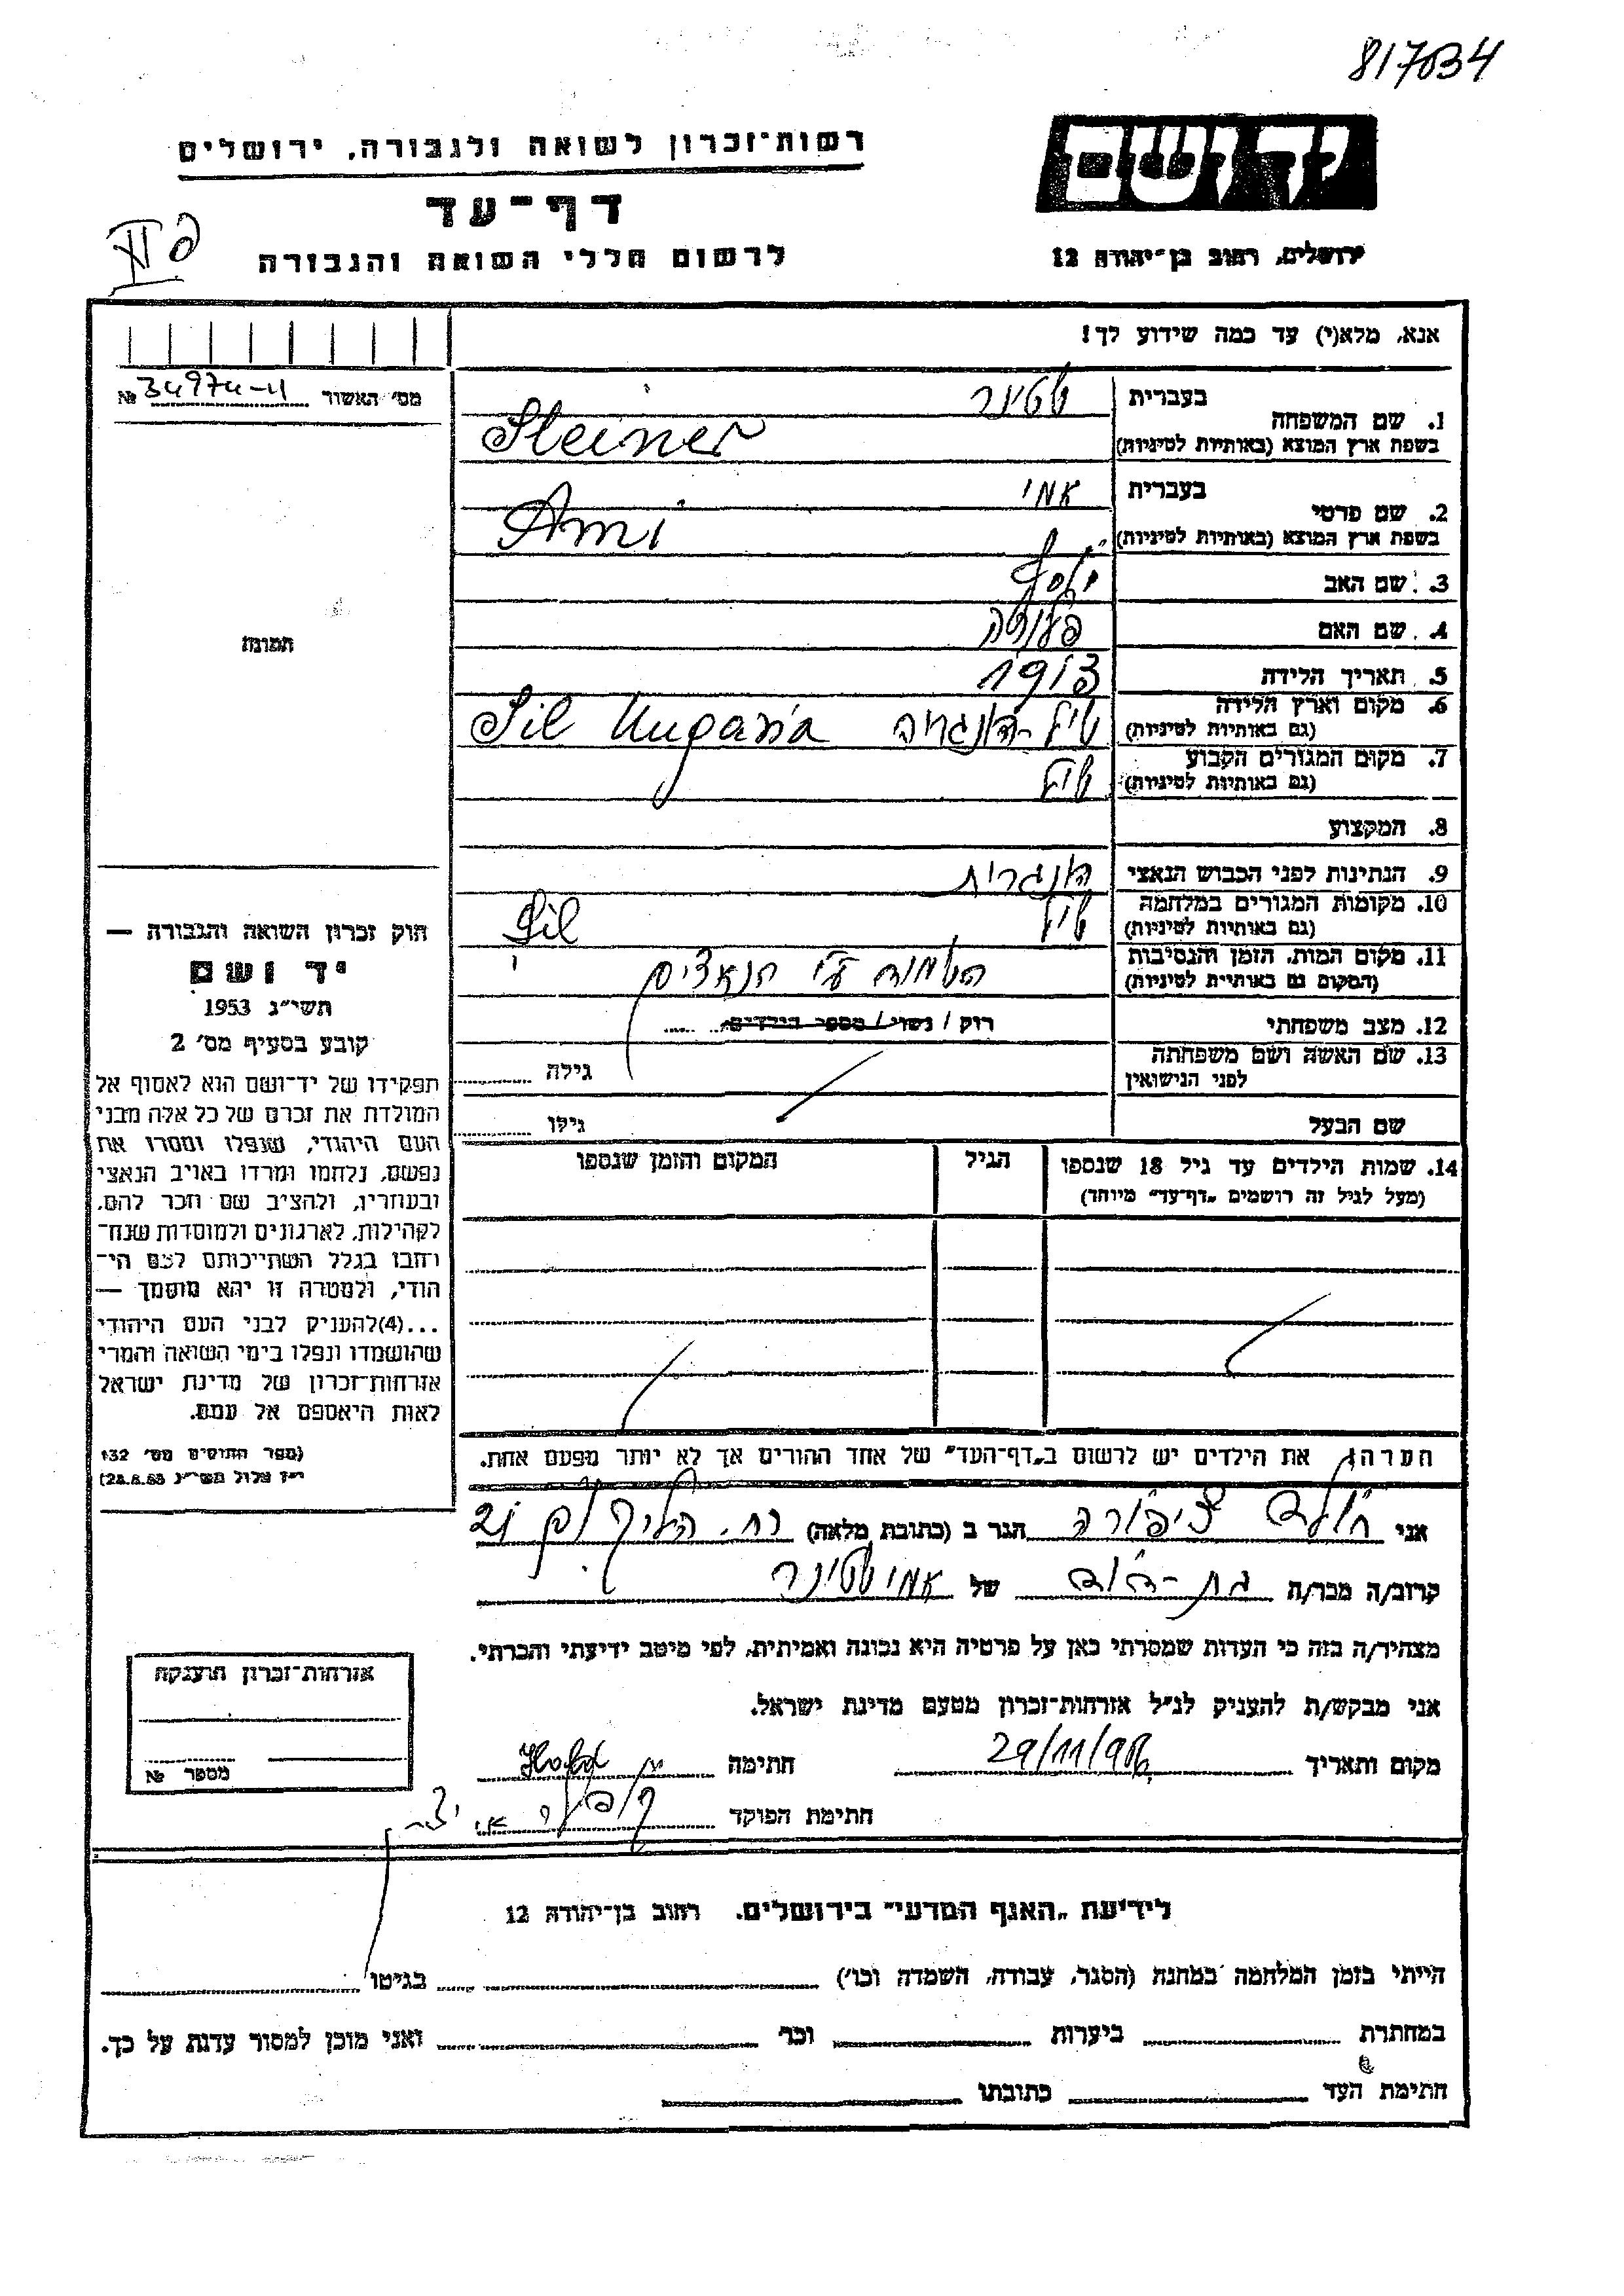 817034
יד ושם
ירושלים, רחוב בן־יהודה 12
רשות־זכרון לשואה ולגבורה, ירושלים
דף־עד
לרשום חללי השואה והגבורה
אנא, מלא(י) עד כמה שידוע לך!
מס׳ האשור № 34974-11
1. שם המשפחה בעברית שטינר
בשפת ארץ המוצא (באותיות לטיניות) Steiner
2. שם פרטי בעברית אמי
בשפת ארץ המוצא (באותיות לטיניות) Ami
3. שם האב יוסף
4. שם האם
5. תאריך הלידה 1913
6. מקום וארץ הלידה
(גם באותיות לטיניות) Sil Hugaria
7. מקום המגורים הקבוע
(גם באותיות לטיניות)
8. המקצוע
9. הנתינות לפני הכבוש הנאצי הונגרית
10. מקומות המגורים במלחמה
(גם באותיות לטיניות) Sil
11. מקום המות, הזמן והנסיבות
(המקום גם באותיות לטיניות) הושמדה ע"י הנאצים
12. מצב משפחתי רוק / נשוי / מספר הילדים
13. שם האשה ושם משפחתה
לפני הנישואין גילה
שם הבעל גילו
14. שמות הילדים עד גיל 18 שנספו הגיל המקום והזמן שנספו
(מעל לגיל זה רושמים „דף־עד״ מיוחד)
תמונה
חוק זכרון השואה והגבורה —
יד ושם
תשי״ג 1953
קובע בסעיף מס׳ 2
תפקידו של יד־ושם הוא לאסוף אל
המולדת את זכרם של כל אלה מבני
העם היהודי, שנפלו ומסרו את
נפשם, נלחמו ומרדו באויב הנאצי
ובעוזריו, ולהציב שם וזכר להם,
לקהילות, לארגונים ולמוסדות שנח־
רחבו בגלל השתייכותם לעם הי־
הודי, ולמטרה זו יהא מוסמך —
...(4)להעניק לבני העם היהודי
שהושמדו ונפלו בימי השואה והמרי
אזרחות־זכרון של מדינת ישראל
לאות היאספם אל עמם.
(ספר החוקים מס׳ 132
י״ז אלול תשי״ג 28.8.53)
הערה: את הילדים יש לרשום ב„דף־העד״ של אחד ההורים אך לא יותר מפעם אחת.
אני ציפורה הגר ב (כתובת מלאה) רח.
קרוב/ה מכר/ה בת-דוד של אמי שטינר
מצהיר/ה בזה כי העדות שמסרתי כאן על פרטיה היא נכונה ואמיתית, לפי מיטב ידיעתי והכרתי.
אני מבקש/ת להעניק לנ״ל אזרחות־זכרון מטעם מדינת ישראל.
מקום ותאריך 29/11/956 חתימה
חתימת הפוקד
אזרחות־זכרון הוענקה
מספר №
לידיעת „האגף המדעי״ בירושלים. רחוב בן־יהודה 12
הייתי בזמן המלחמה במחנה (הסגר, עבודה, השמדה וכו׳) בגיטו
במחתרת ביערות וכו׳ ואני מוכן למסור עדות על כך.
חתימת העד כתובתו